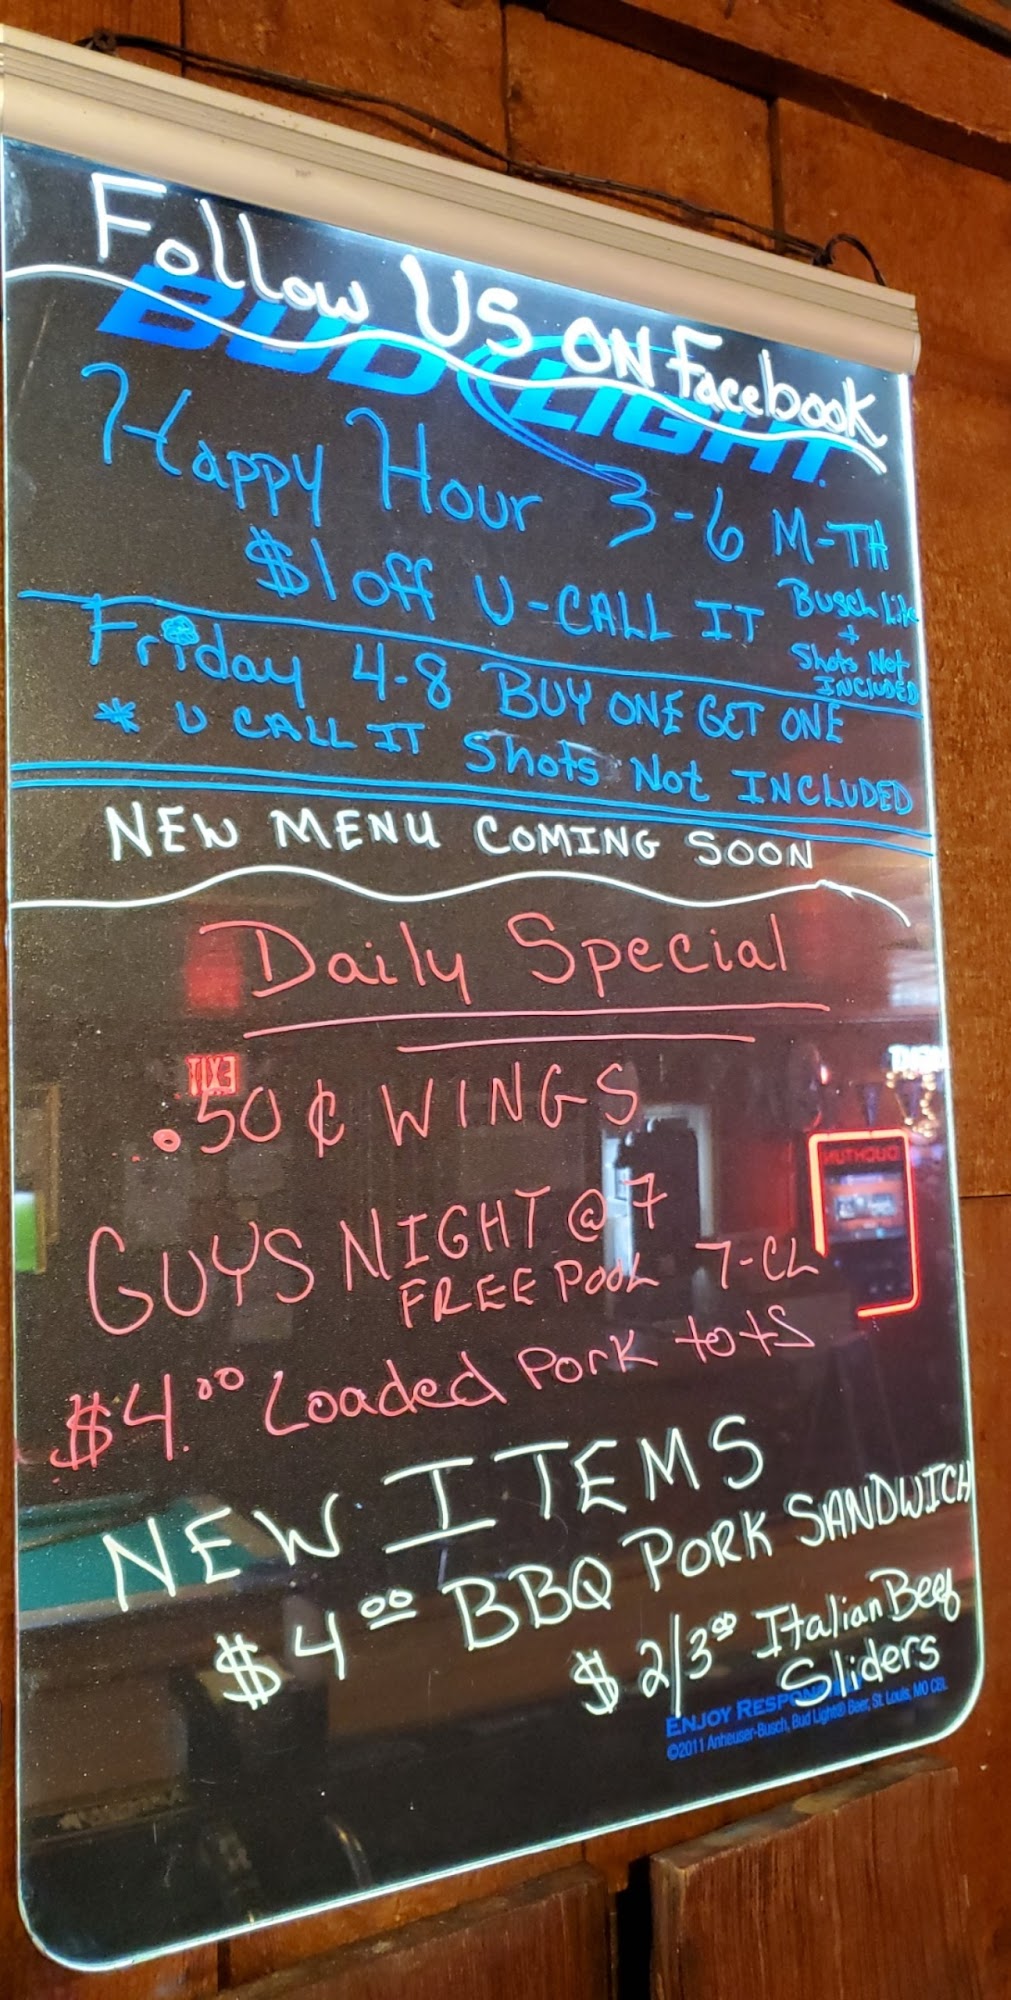 Follow US ON Facebook
BUD LIGHT
Happy Hour 3-6 M-TH
$1 off U-CALL IT Busch Lite
+
Shots Not
INCLUDED
Friday 4-8 BUY ONE GET ONE
* U CALL IT Shots Not INCLUDED
NEW MENU COMING SOON
Daily Special
EXIT
.50¢ WINGS
GUYS NIGHT @ 7
FREE POOL 7-CL
$4.00 Loaded Pork tots
NEW ITEMS
$4.00 BBQ PORK SANDWICH
$2/3.00 Italian Beef
Sliders
ENJOY RESPONSIBLY
©2011 Anheuser-Busch, Bud Light® Beer, St. Louis, MO CBL